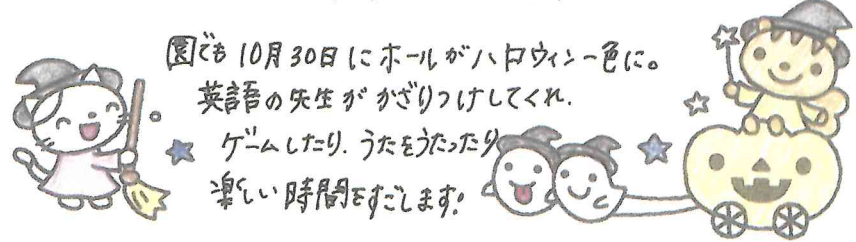 園でも10月30日にホールがハロウィン一色に。
英語の先生がかざりつけしてくれ、
ゲームしたり、うたをうたったり
楽しい時間をすごします!